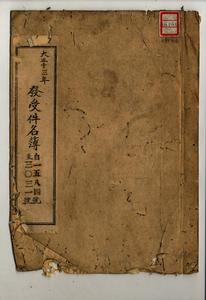 大正十三年
發受件名簿
自一五九四號
至三〇三一號